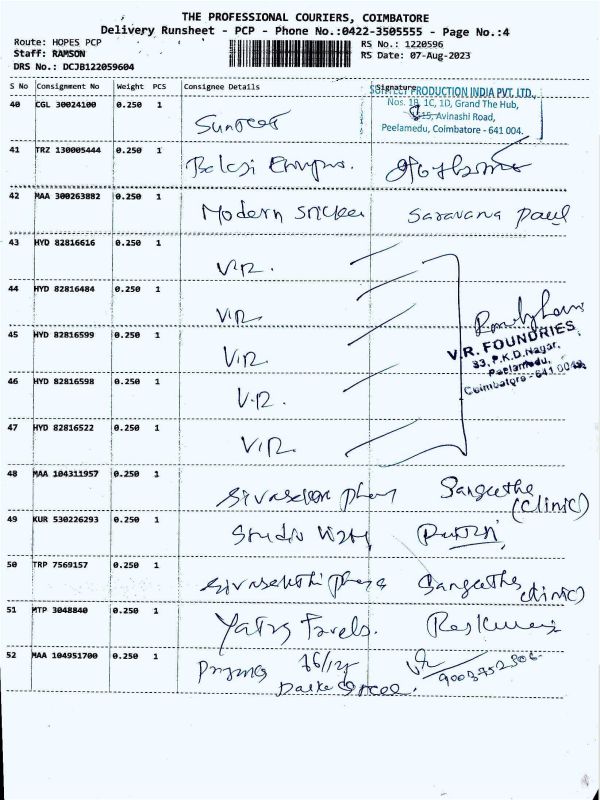 THE PROFESSIONAL COURIERS, COIMBATORE
Delivery Runsheet - PCP - Phone No.:0422-3505555 - Page No.:4
Route: HOPES PCP RS No.: 1220596
Staff: RAMSON RS Date: 07-Aug-2023
DRS No.: DCJB122059604
S No Consignment No Weight PCS Consignee Details Signature
PRODUCTION INDIA PVT. LTD.,
Nos. 1B, 1C, 1D, Grand The Hub,
Avinashi Road,
Peelamedu, Coimbatore - 641 004.
40 CGL 30024100 0.250 1
41 TRZ 130005444 0.250 1
42 MAA 300263882 0.250 1 Modern Saravana
43 HYD 82816616 0.250 1 V.R.
44 HYD 82816484 0.250 1 V.R.
45 HYD 82816599 0.250 1 V.R.
V.R. FOUNDRIES
33, P.K.D.Nagar,
Peelamedu,
Coimbatore - 641 004.
46 HYD 82816598 0.250 1 V.R.
47 HYD 82816522 0.250 1 V.R.
48 MAA 104311957 0.250 1 Sangeetha
(Clinic)
49 KUR 530226293 0.250 1 Studio
50 TRP 7569157 0.250 1 Sangeetha clinic)
51 MTP 3048840 0.250 1
52 MAA 104951700 0.250 1